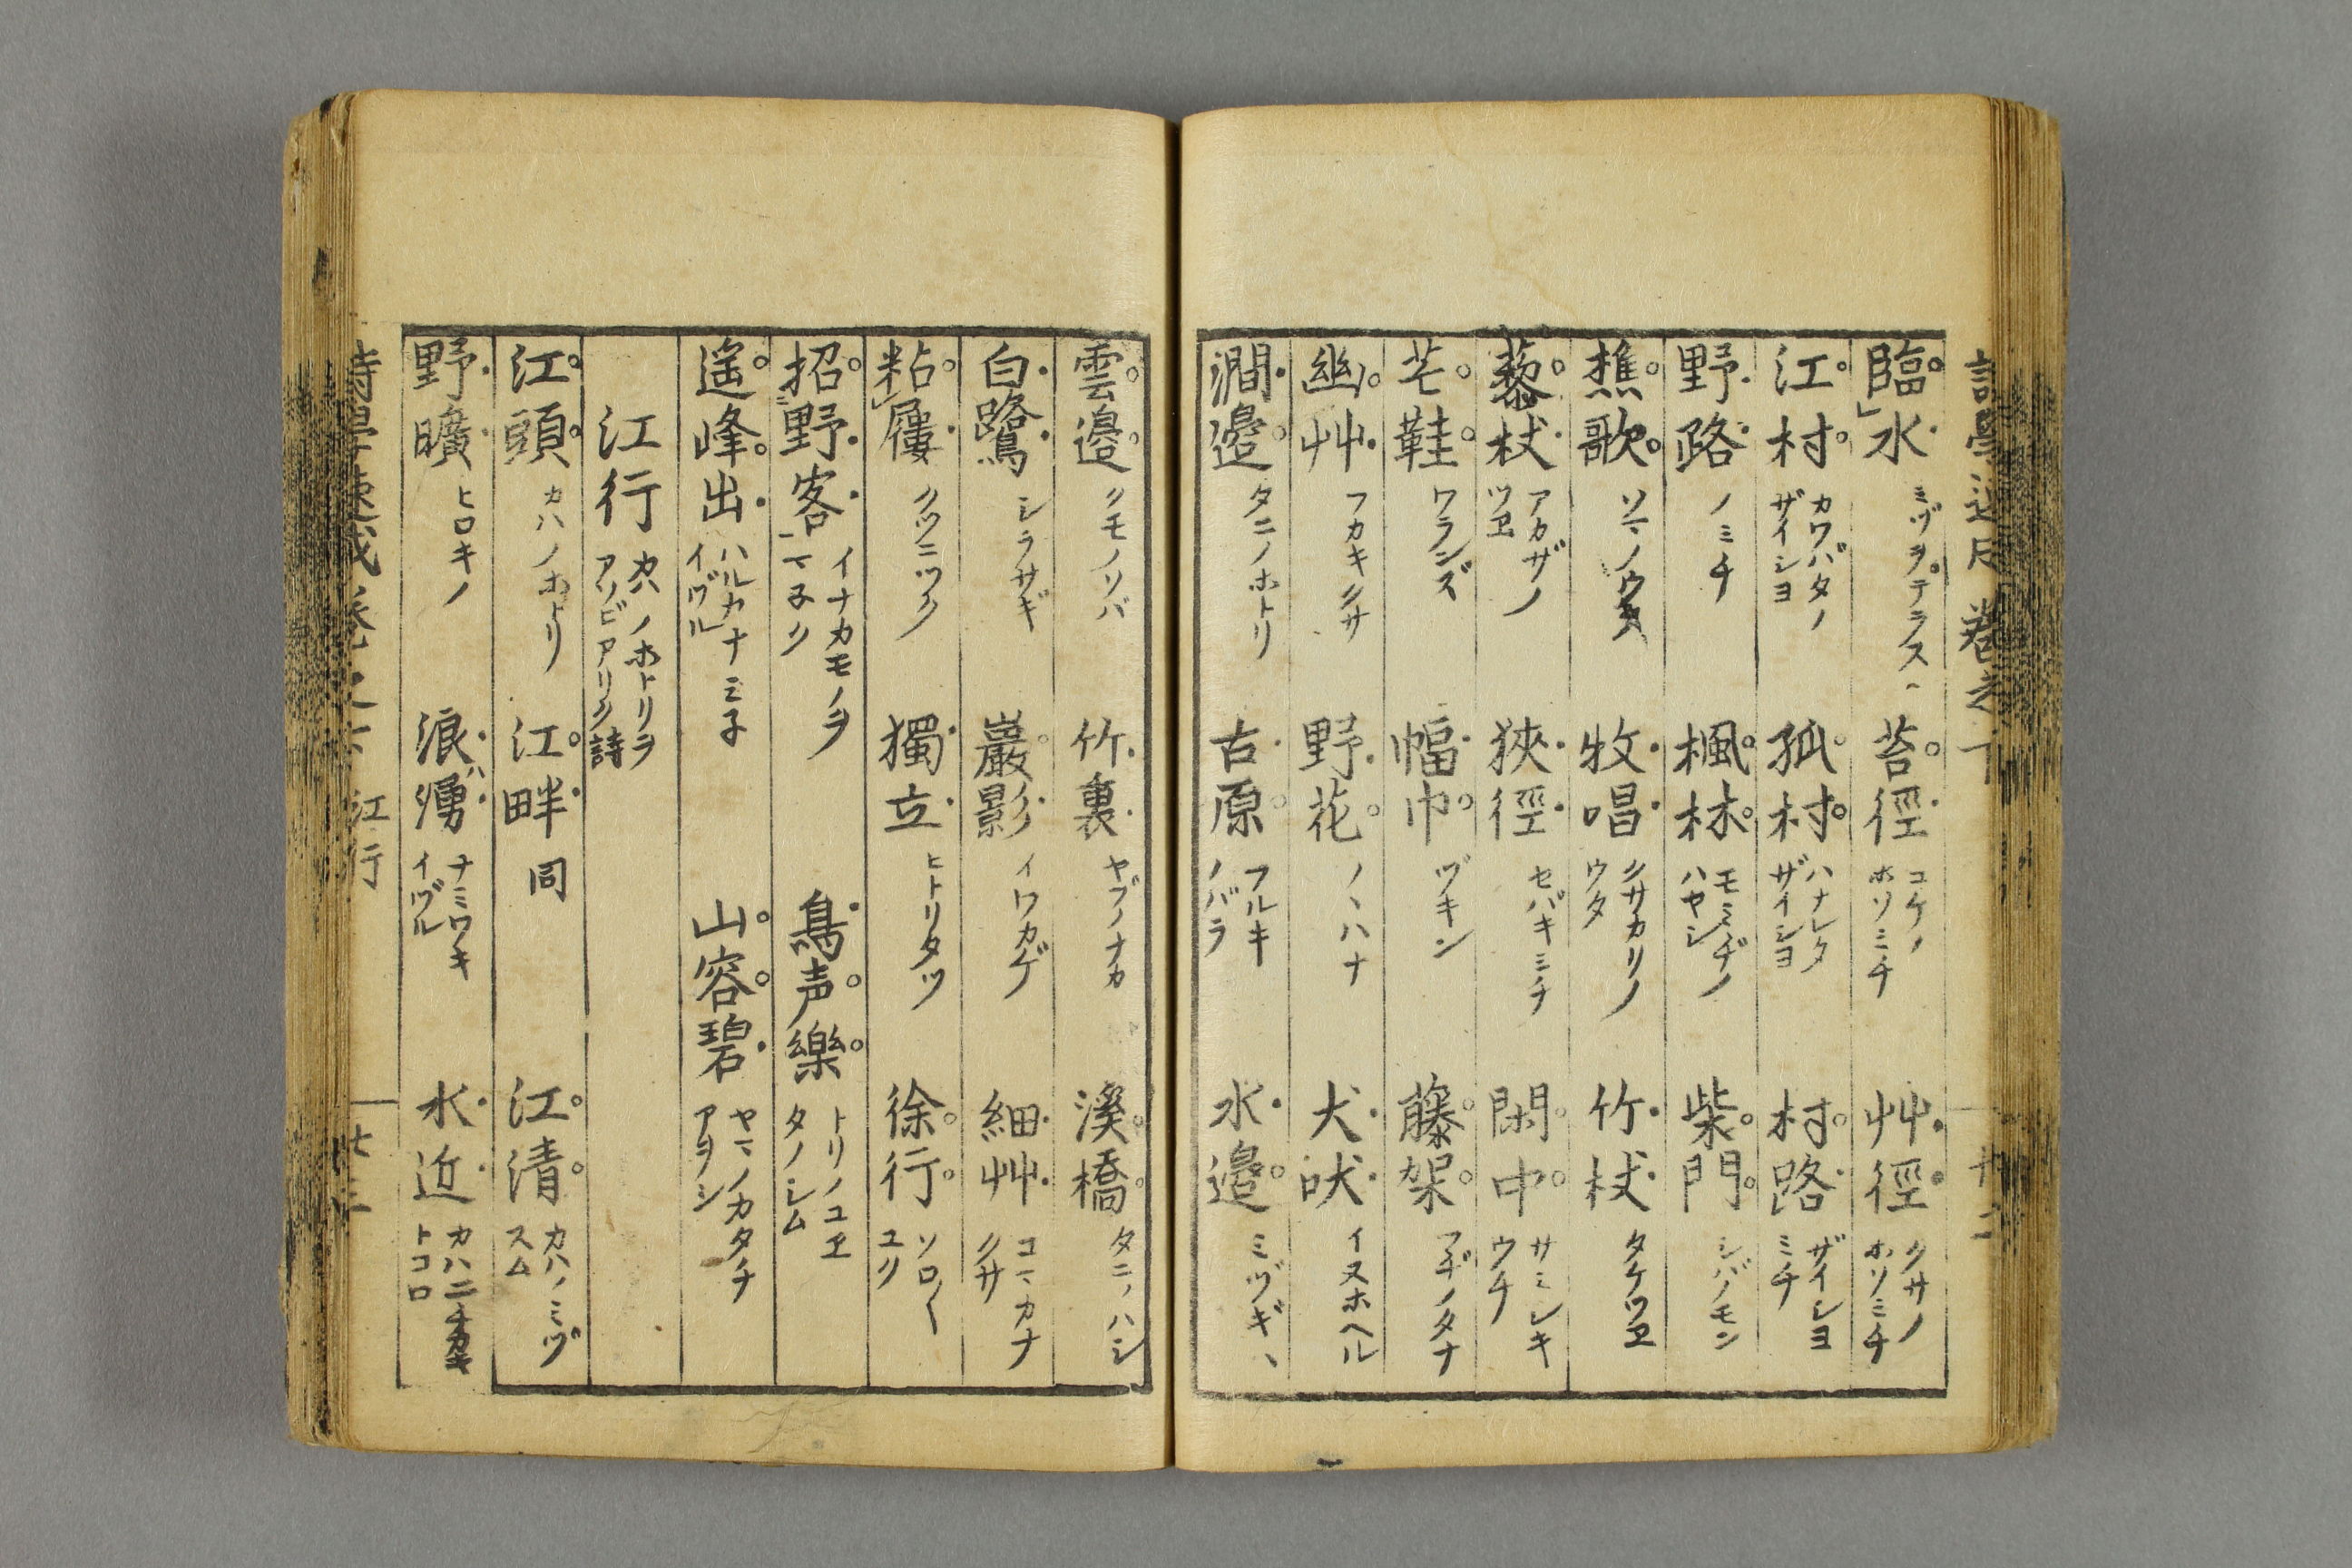 臨水 ミヅヲテラス 苔徑 コケノホソミチ 艸徑 クサノホソミチ
江村 カワバタノザイシヨ 孤村 ハナレタザイシヨ 村路 ザイシヨミチ
野路 ノミチ 楓林 モミヂノハヤシ 柴門 シバノモン
樵歌 ソマノウタ 牧唱 クサカリノウタ 竹杖 タケツヱ
藜杖 アカザノツヱ 狹徑 セバキミチ 閑中 サミシキウチ
芒鞋 ワランズ 幅巾 ヅキン 藤架 フヂノタナ
幽艸 フカキクサ 野花 ノヽハナ 犬吠 イヌホヘル
澗邉 タニノホトリ 古原 フルキノバラ 水邉 ミヅギヽ
雲邉 クモノソバ 竹裏 ヤブノナカ 溪橋 タニノハシ
白鷺 シラサギ 巖影 イワカゲ 細艸 コマカナクサ
粘屨 クツニツク 獨立 ヒトリタツ 徐行 ソロ〱ユク
招野客 イナカモノヲマ子ク 鳥声樂 トリノコヱタノシム
遥峰出 ハルカナミ子イヅル 山容碧 ヤマノカタチアヲシ
江行 カハノホトリヲアソビアリク詩
江頭 カハノホトリ 江畔 同 江清 カハノミヅスム
野曠 ヒロキノ 浪湧 ナミワキイヅル 水近 カハニチカキトコロ
江行